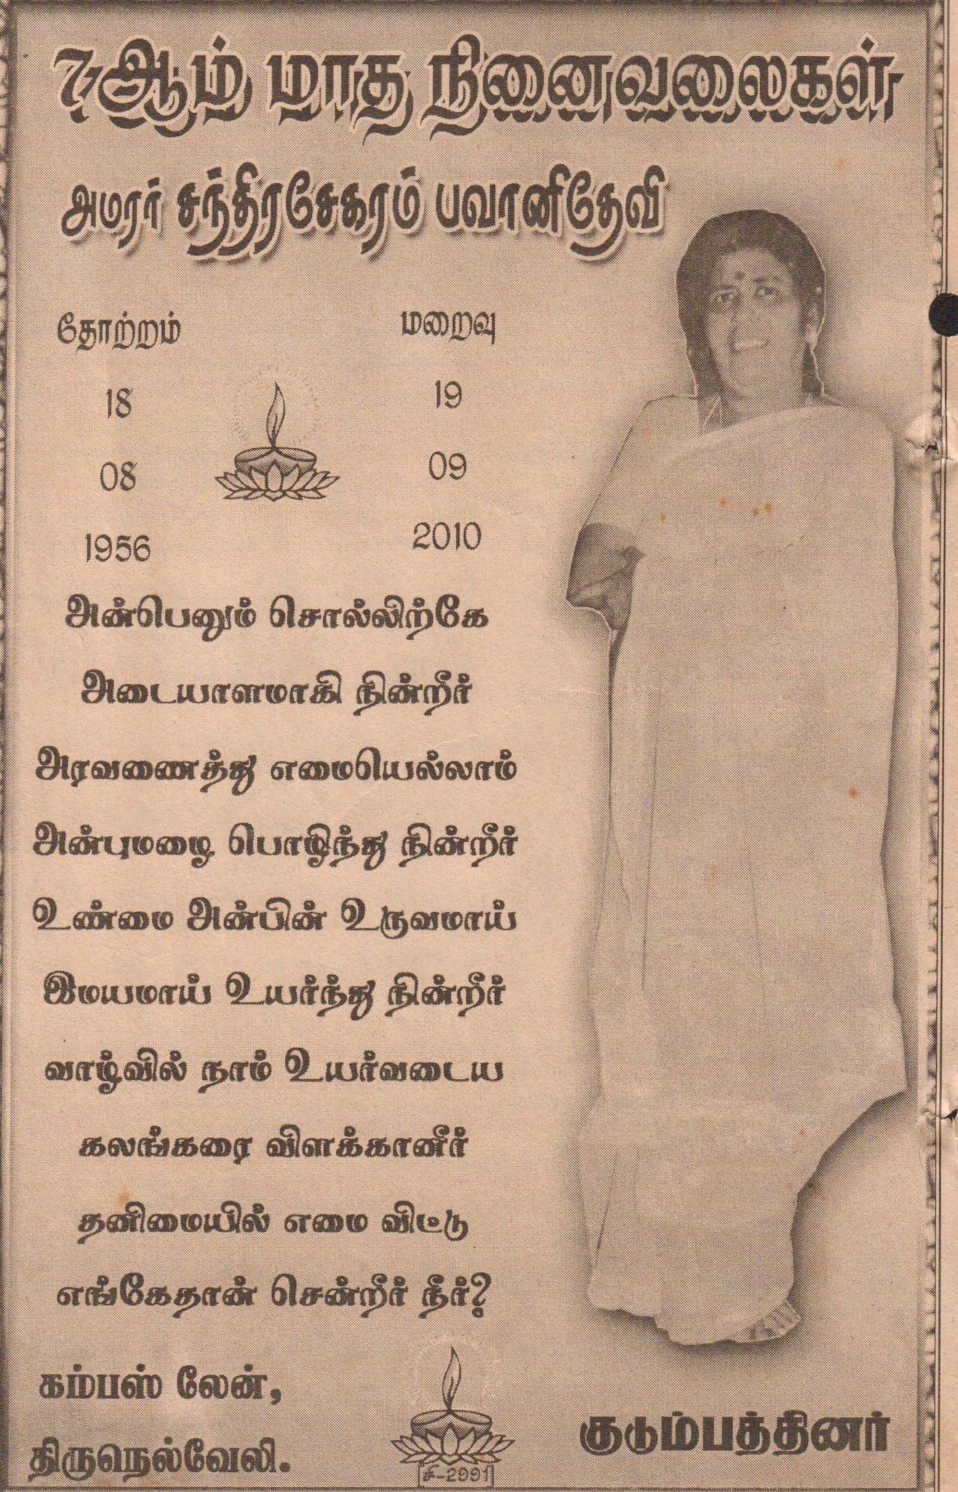 7ஆம் மாத நினைவலைகள்
அமரர் சந்திரசேகரம் பவானிதேவி
தோற்றம் மறைவு
18 19
08 09
1956 2010
அன்பெனும் சொல்லிற்கே
அடையாளமாகி நின்றீர்
அரவணைத்து எமையெல்லாம்
அன்புமழை பொழிந்து நின்றீர்
உண்மை அன்பின் உருவமாய்
இமயமாய் உயர்ந்து நின்றீர்
வாழ்வில் நாம் உயர்வடைய
கலங்கரை விளக்கானீர்
தனிமையில் எமை விட்டு
எங்கேதான் சென்றீர் நீர்?
கம்பஸ் லேன்,
திருநெல்வேலி.
குடும்பத்தினர்
சி-2991